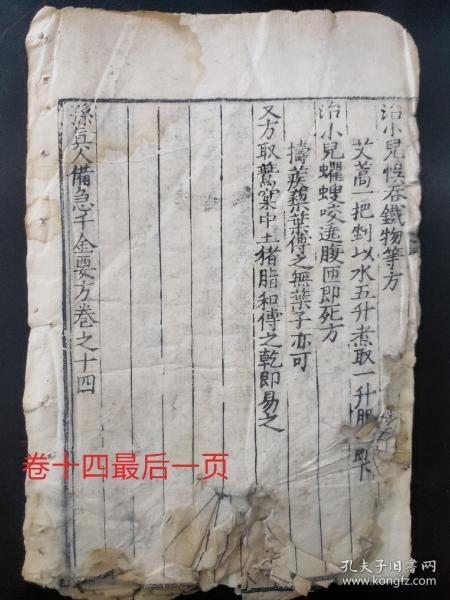 治小兒悞吞鐵物等方
艾蒿一把剉以水五升煮取一升服 即下
治小兒蠼螋咬遶腹匝即死方
擣蒺䔧葉傅之無葉子亦可
又方取鷰窠中土猪脂和傅之乾即易之
孫真人備急千金要方卷之十四
卷十四最后一页
孔夫子旧书网
www.kongfz.com